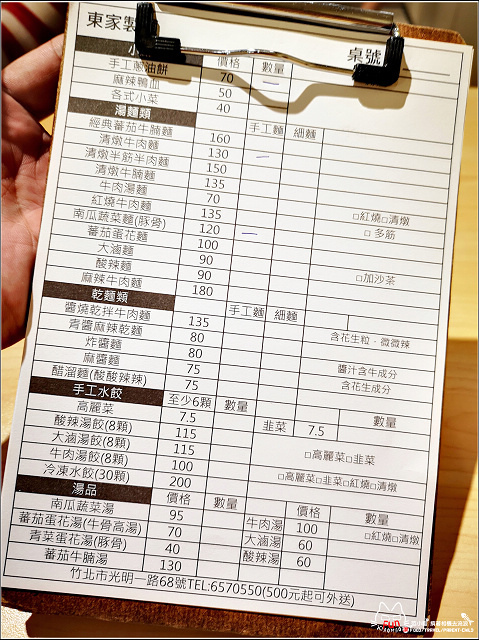 東家製 桌號
小 價格 數量
手工蔥油餅 70
麻辣鴨血 50
各式小菜 40
湯麵類 手工麵 細麵
經典蕃茄牛腩麵 160
清燉牛肉麵 130
清燉半筋半肉麵 150
清燉牛腩麵 135
牛肉湯麵 70 □紅燒□清燉
紅燒牛肉麵 135 □多筋
南瓜蔬菜麵(豚骨) 120
蕃茄蛋花麵 100
大滷麵 90 □加沙茶
酸辣麵 90
麻辣牛肉麵 180
乾麵類 手工麵 細麵
醬燒乾拌牛肉麵 135 含花生粒，微微辣
青醬麻辣乾麵 80
炸醬麵 80 醬汁含牛成分
麻醬麵 75 含花生成分
醋溜麵(酸酸辣辣) 75
手工水餃 至少6顆 數量 數量
高麗菜 7.5 韭菜 7.5
酸辣湯餃(8顆) 115
大滷湯餃(8顆) 115 □高麗菜□韭菜
牛肉湯餃(8顆) 100 □高麗菜□韭菜□紅燒□清燉
冷凍水餃(30顆) 200
湯品 價格 數量 價格 數量
南瓜蔬菜湯 95 牛肉湯 100 □紅燒□清燉
蕃茄蛋花湯(牛骨高湯) 70 大滷湯 60
青菜蛋花湯(豚骨) 40 酸辣湯 60
蕃茄牛腩湯 130
竹北市光明一路68號TEL:6570550(500元起可外送)